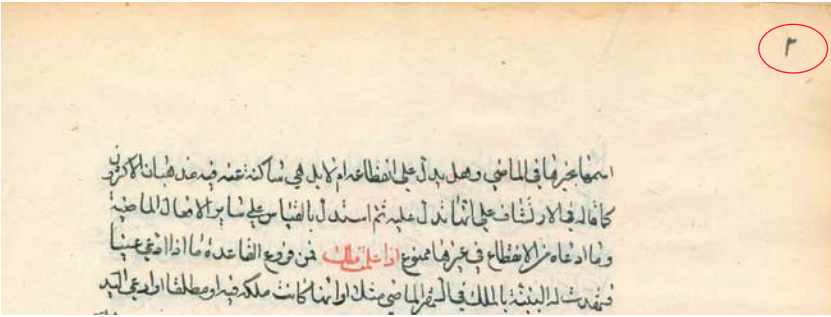 ٢
اسمها بخبرها في الماضي وهل يدل على انقطاعه ام لا بل هي ساكنة عنه فيه مذهبان الاكثرون
كما قاله في الارتشاف على انها تدل عليه ثم استدل بالقياس على ساير الافعال الماضية
وما ادعاه من الانقطاع في غيرها ممنوع اذا علمت ذلك فمن فروع القاعدة ما اذا ادعى عينا
فشهدت له البينة بالملك في الشهر الماضي مثلا او انها كانت ملكه فيه او مطلقا او ادعى اليد